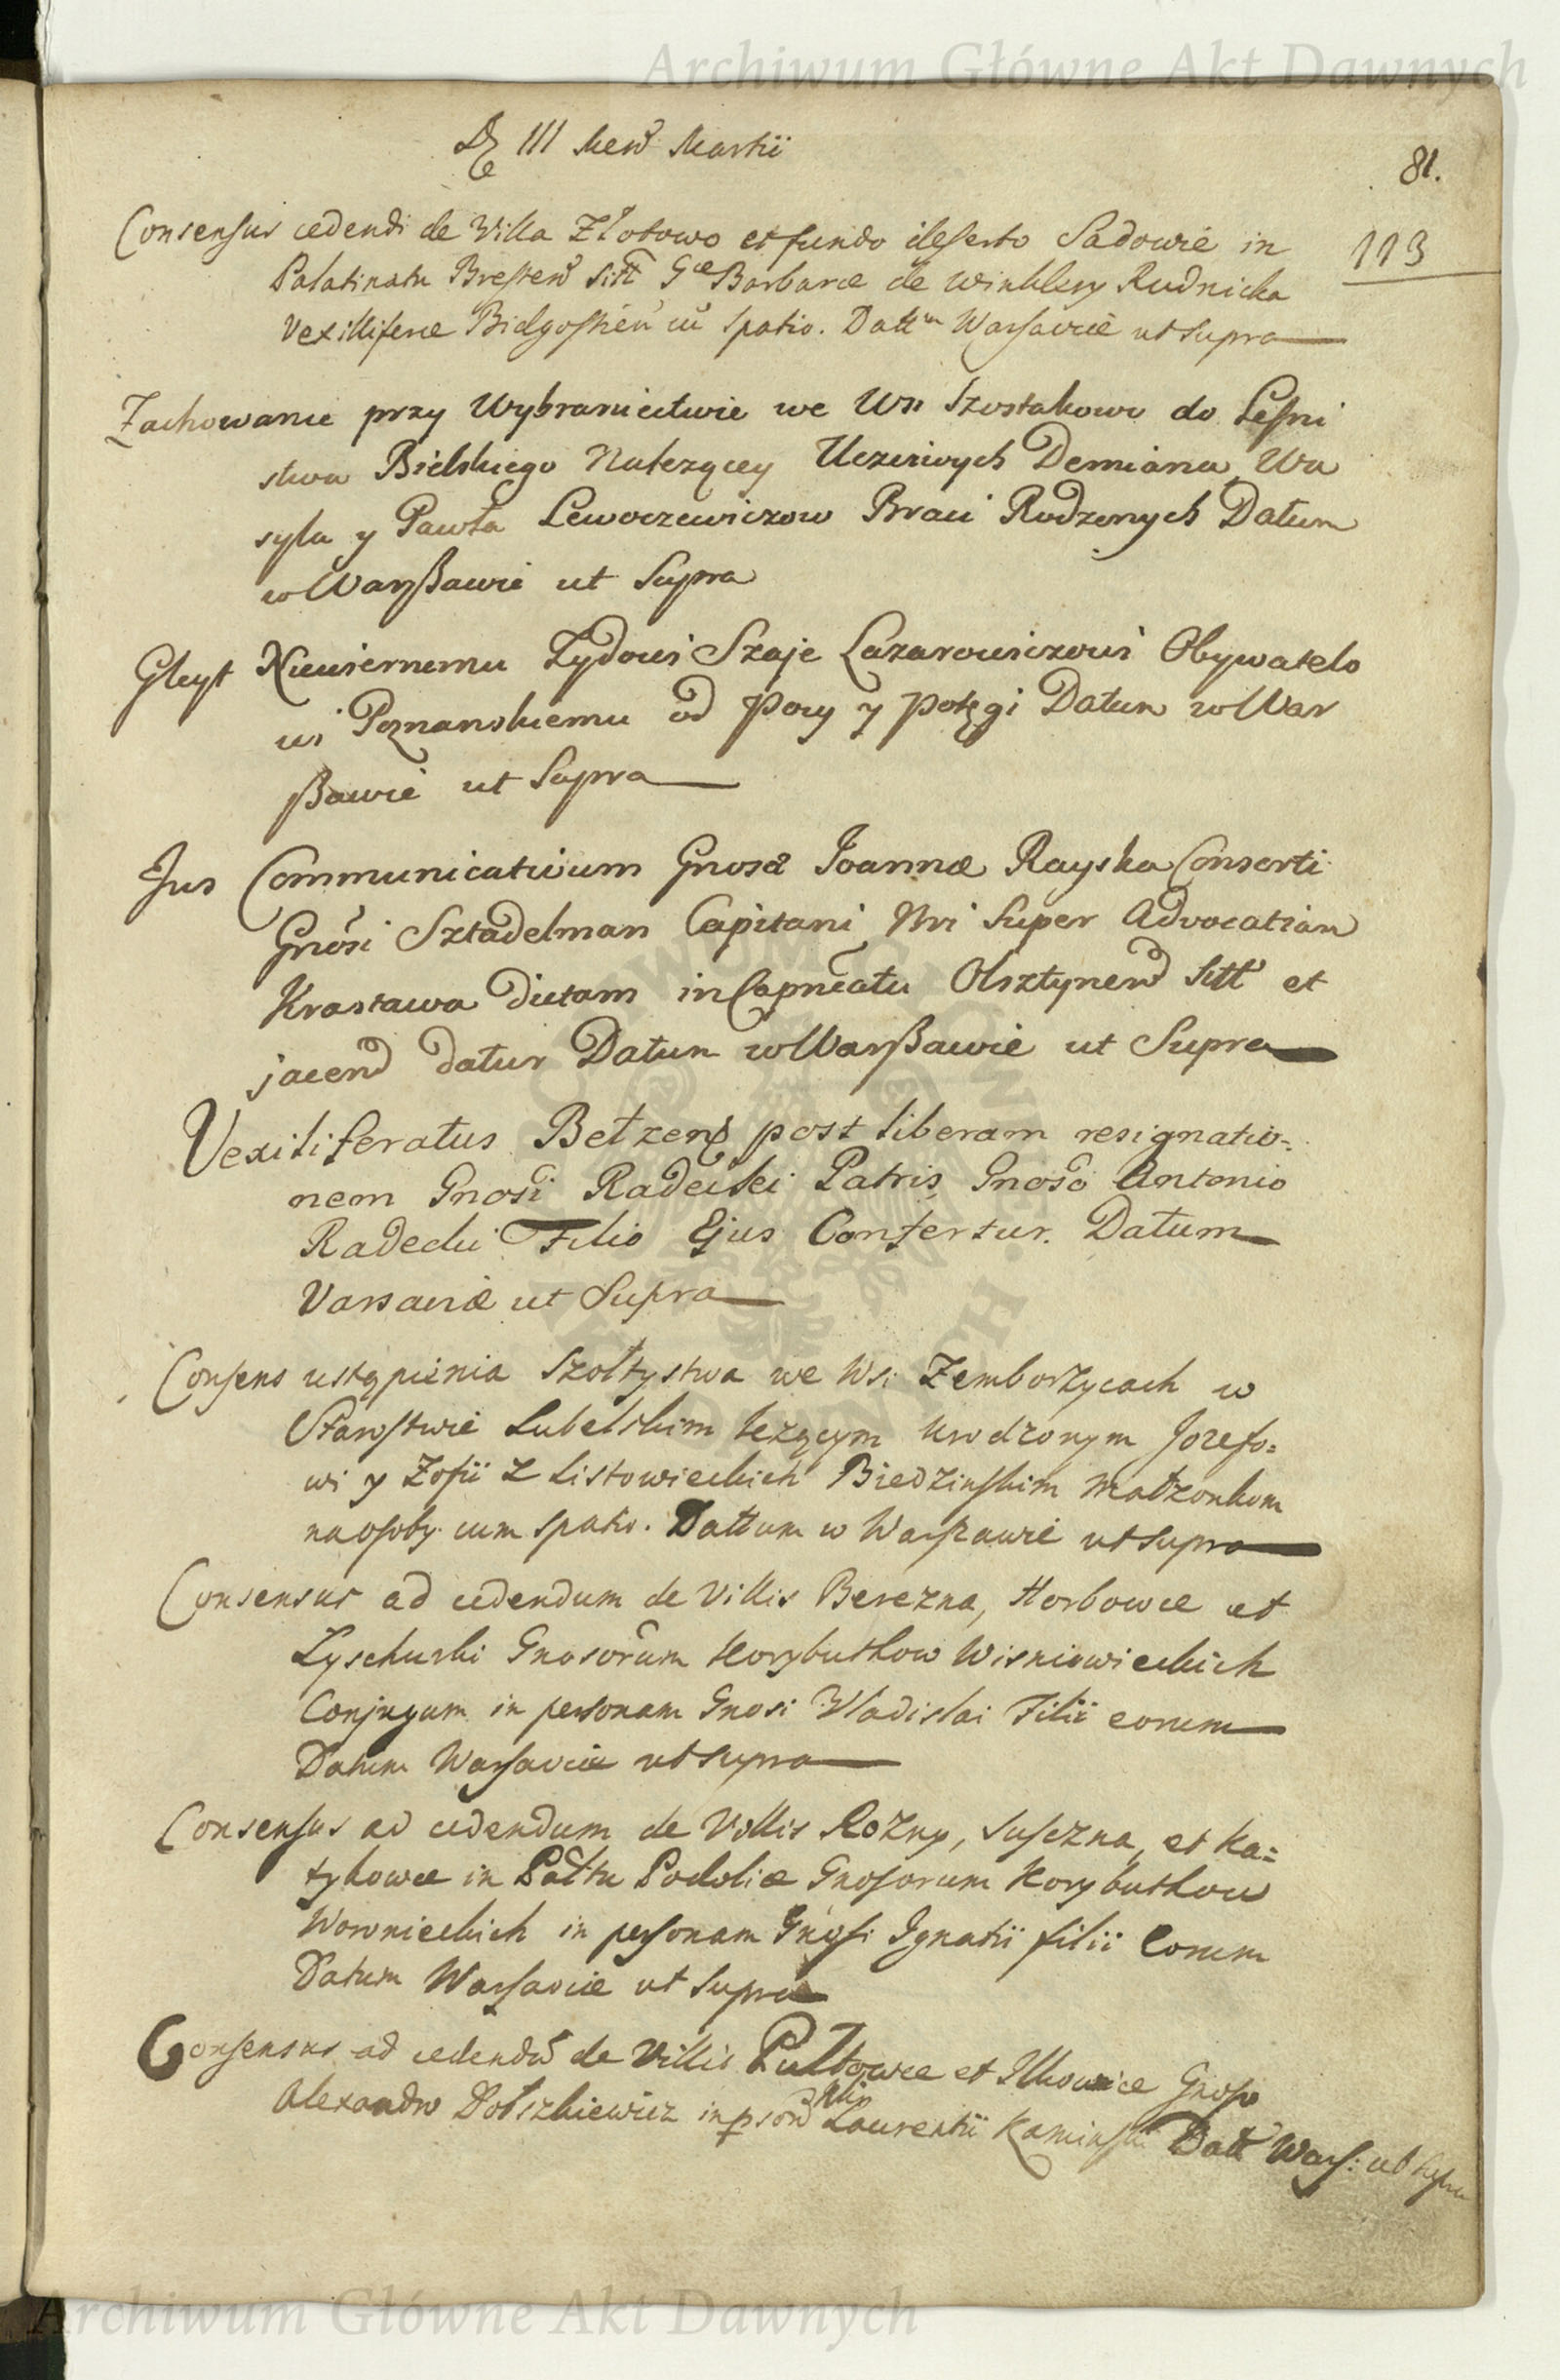 Archiwum Główne Akt Dawnych
Die III Mens Martii
81.
Consensus cedendi de Villa Złotowo et fundo deserto Sadowie in
113
Palatinatu Brestens sitt Gae Barbarae de Winklery Rudnicka
Vexilliferae Bidgostien cu spatio. Dattm Warsaviae ut supra
Zachowanie przy Wybraniectwie we Wsi Szostakowo do Leśni
stwa Bielskiego Należącey Uczciwych Demiana, Wa
syla y Pawła Lewoczewiczow Braci Rodzonych Datum
w Warszawie ut Supra
Gleyt Niewiernemu Żydowi Szaje Lazarowiczowi Obywatelo
wi Poznanskiemu od Pocy y Potęgi Datum w War
szawie ut Supra
Jus Communicativum Gnosae Joannae Rayska Consorti
Gnosi Sztadelman Capitani Nri Super Advocatiam
Krasława dictam in Capneatu Olsztynens sitt et
jacend datur Datum w Warszawie ut Supra
Vexiliferatus Bełzens post liberam resignatio=
nem Gnosi Radecki Patris Gnoso Antonio
Radecki Filio Ejus Confertur. Datum
Varsaviae ut Supra
Consens ustąpienia Szołtystwa we Wsi Zemborzycach w
Starostwie Lubelskim leżącym Urodzonym Jozefo=
wi y Zofii z Listowieckich Biedzinskim Małżonkom
na osoby cum spatio. Dattum w Warszawie ut supra
Consensus ad cedendum de Villis Berezna, Horbowce et
Lyschurki Gnosorum Korybuthow Wisniowieckich
Conjugum in personam Gnosi Wladislai Filii eorum
Datum Warsaviae ut supra
Consensus ad cedendum de Villis Rozny, Susczna, et Ka=
tyhowce in Paltu Podoliae Gnosorum Korybuthow
Woronieckich in personam Gnosi Ignatii filii Eorum
Datum Warsaviae ut supra
Consensus ad cedendu de Villis Pultowce et Ilkowice Gnoso
Alexandro Dołszkiewicz in pson Gni Laurentii Kaminski Datt Wars: ut supra
Archiwum Główne Akt Dawnych